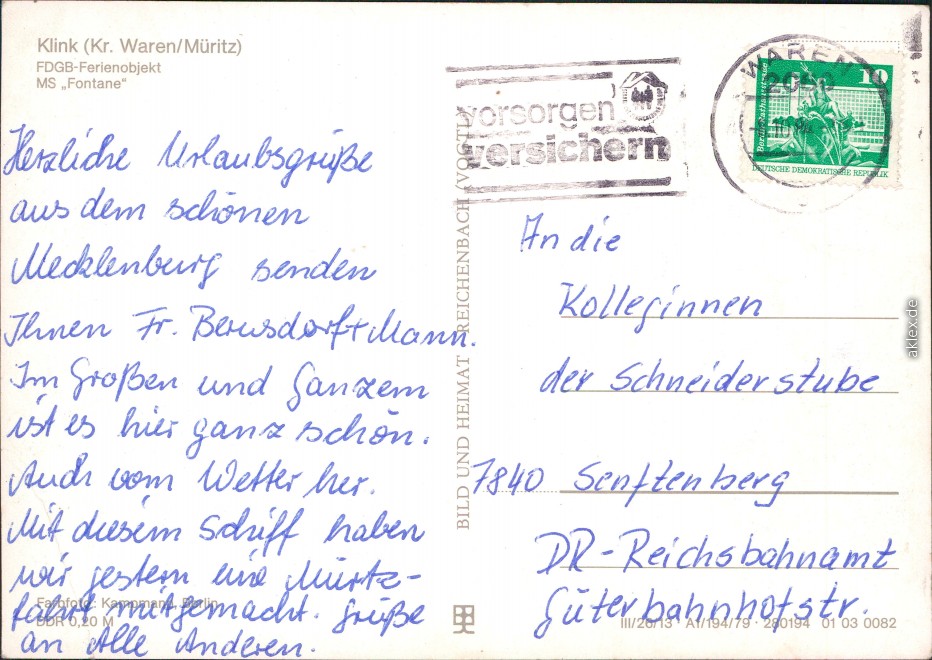 Klink (Kr. Waren/Müritz)
FDGB-Ferienobjekt
MS „Fontane“
Herzliche Urlaubsgrüße
aus dem schönen
Mecklenburg senden
Ihnen Fr. Berusdorf + Mann.
Im Großen und Ganzem
ist es hier ganz schön.
Auch vom Wetter her.
Mit diesem Schiff haben
wir gestern eine Müritz-
fahrt mitgemacht. Grüße
an Alle Anderen.
Farbfoto: Kampmann, Berlin
DDR 0,20 M
BILD UND HEIMAT REICHENBACH (VOGTL)
vorsorgen
versichern
WAREN
2060
10
DEUTSCHE DEMOKRATISCHE REPUBLIK
An die
Kolleginnen
der Schneiderstube
7840 Senftenberg
DR-Reichsbahnamt
Güterbahnhofstr.
III/26/13 · A1/194/79 · 280194 01 03 0082
aklex.de